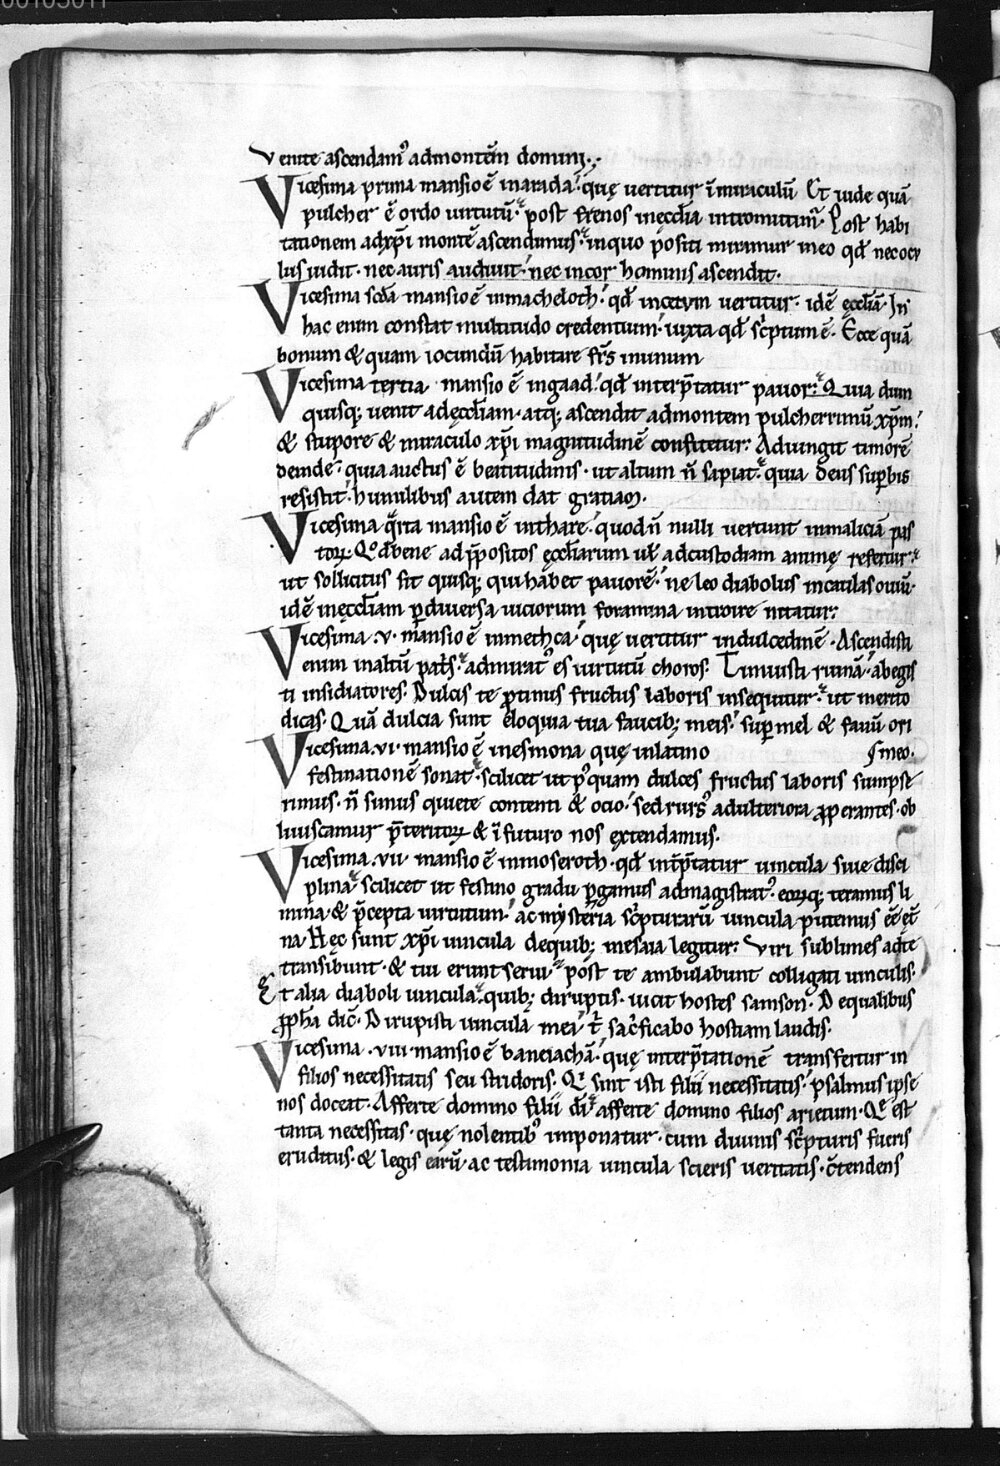 Venite ascendam᷒ admontē domini.
Vicesima prima mansio ē inarada. quę vertitur ī miraculū Et uide quā
pulcher ē ordo uirtutū. post frenos inęccl̄ia intromittim̄. Post habi
tationem adxp̄i montē ascendimus. inquo positi miramur ineo qđ necocu
lus uidit. nec auris audiuit. nec incor hominis ascendit.
Vicesima scđa mansio ē inmacheloth. qđ incetum vertitur. idē ęccl̄iā. In
hac enim constat multitudo credentium. iuxta qđ sc̄ptum ē. Ecce quā
bonum & quam iocundū habitare fr̄s inunum
Vicesima tertia mansio ē ingaad. qđ interp̄tatur pavor. Quia dum
quisq; uenit adęccl̄iam. atq; ascendit admontem pulcherrimū xp̄m.
& stupore & miraculo xp̄i magnitudinē confitetur. Adiungit timorē
deinde. quia auctus ē beatitudinis. ut altum n̄ sapiat. quia deus supbis
resistit. humilibus autem dat gratiam.
Vicesima qͣrta mansio ē inthare. quod n̄ nulli vertunt inmaliciā pas
torꝝ. Qđ bene adp̄positos ęccl̄iarum ul̄ adcustodiam animę refertur.
ut sollicitus sit quisq; qui habet pauorē. ne leo diabolus incaulas ouiū.
idē inęccl̄iam ꝑ diuersa uiciorum foramina introire nitatur.
Vicesima .v. mansio ē inmethca. quę vertitur indulcedinē. Ascendisti
enim inaltū. admirat᷒ es uirtutū choros. Timuisti ruinā. abegis
ti insidiatores. Dulcis te ꝓtinus fructus laboris insequitur. ut merito
dicas. Quā dulcia sunt eloquia tua faucib; meis. super mel & fauū ori
Vicesima .vi. mansio ē inesmona quę inlatino meo.
festinationē sonat. scilicet ut p᷒quam dulces fructus laboris sumpse
rimus. n̄ simus quiete contenti & ocio. sed rurs᷒ adulteriora ꝓperantes. ob
liuiscamur p̄teritorꝝ & ī futuro nos extendamus.
Vicesima .vii. mansio ē inmoseroth. qđ int̄p̄tatur uincula siue disci
plina. scilicet ut festino gradu ꝑgamus admagistrat᷒. eorꝝq; teramus li
mina. & p̄cepta uirtutum. ac mysteria sc̄pturarū uincula putemus ēē ęt̄
na. Hęc sunt xp̄i uincula dequib; inesaia legitur. Viri sublimes adte
transibunt. & tui erunt serui. post te ambulabunt colligati uinculis.
Et alia diaboli uincula. quib; diruptis. uicit hostes samson. De qualibus
ꝓph̄a dic̄. Dirupisti uincula mea. t̄ sac̄ficabo hostiam laudis.
Vicesima .viii. mansio ē baneiachā. quę interp̄tationē transfertur in
filios necessitatis seu stridoris. Qͥ sunt isti filii necessitatis. psalmus ipse
nos doceat. Afferte domino filii dī. afferte domino filios arietum. Qͥ est
tanta necessitas. quę nolentib᷒ imponatur. cum diuinis sc̄pturis fueris
eruditus. & legis earū. ac testimonia uincula scieris ueritatis. c̄tendens